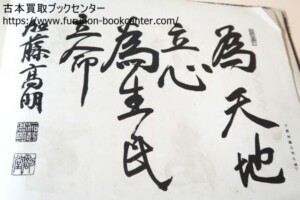 古本買取ブックセンター
https://www.furuhon-bookcenter.com/
為天地
立心
為生民
立命
加藤高明